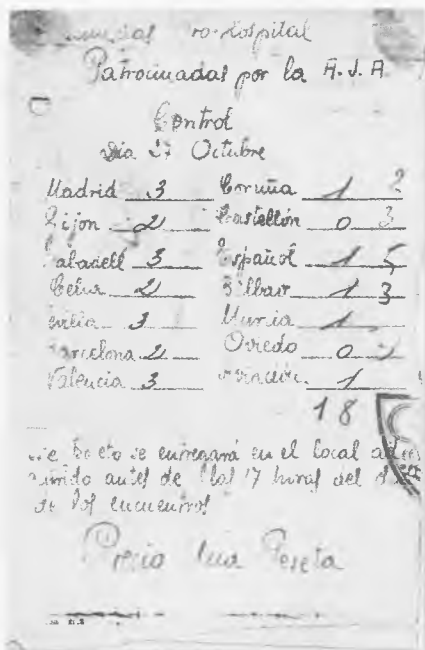 Pro-Hospital
Patrocinadas por la A.J.A
Control
Dia 27 Octubre
Madrid 3 Coruña 1 2
Gijon 2 Castellón 0 3
Sabadell 3 Español 1 5
Celta 2 Bilbao 1 3
Sevilla 3 Murcia 1
Barcelona 2 Oviedo 0
Valencia 3 1
18
se entregará en el local
antes de las 17 horas del
de los encuentros
Precio Una Peseta